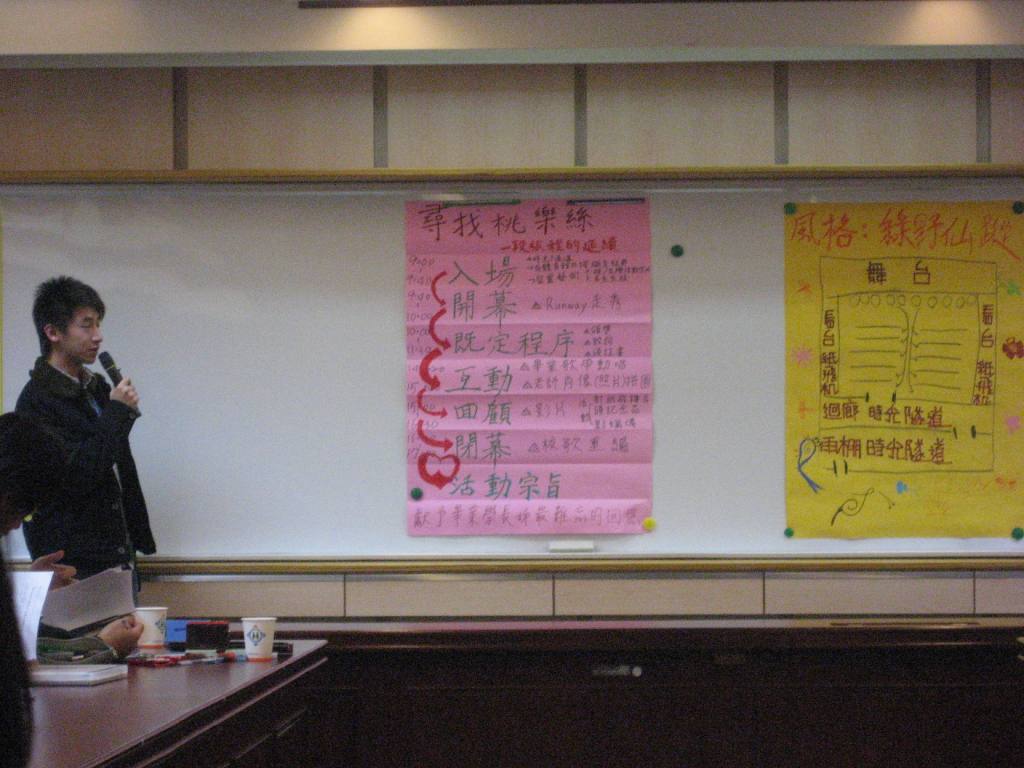 尋找桃樂絲
一段旅程的延續
9:00
入場
開幕 △Runway走秀
10:00
既定程序
互動 △畢業歌帶動唱
△老師肖像(照片)拼圖
回顧 △影片
閉幕 △校歌重編
活動宗旨
獻予畢業學長姊最難忘的回憶
風格：綠野仙蹤
舞台
看台 看台
紙飛机 紙飛机
迴廊 時光隧道
雨棚 時光隧道
H